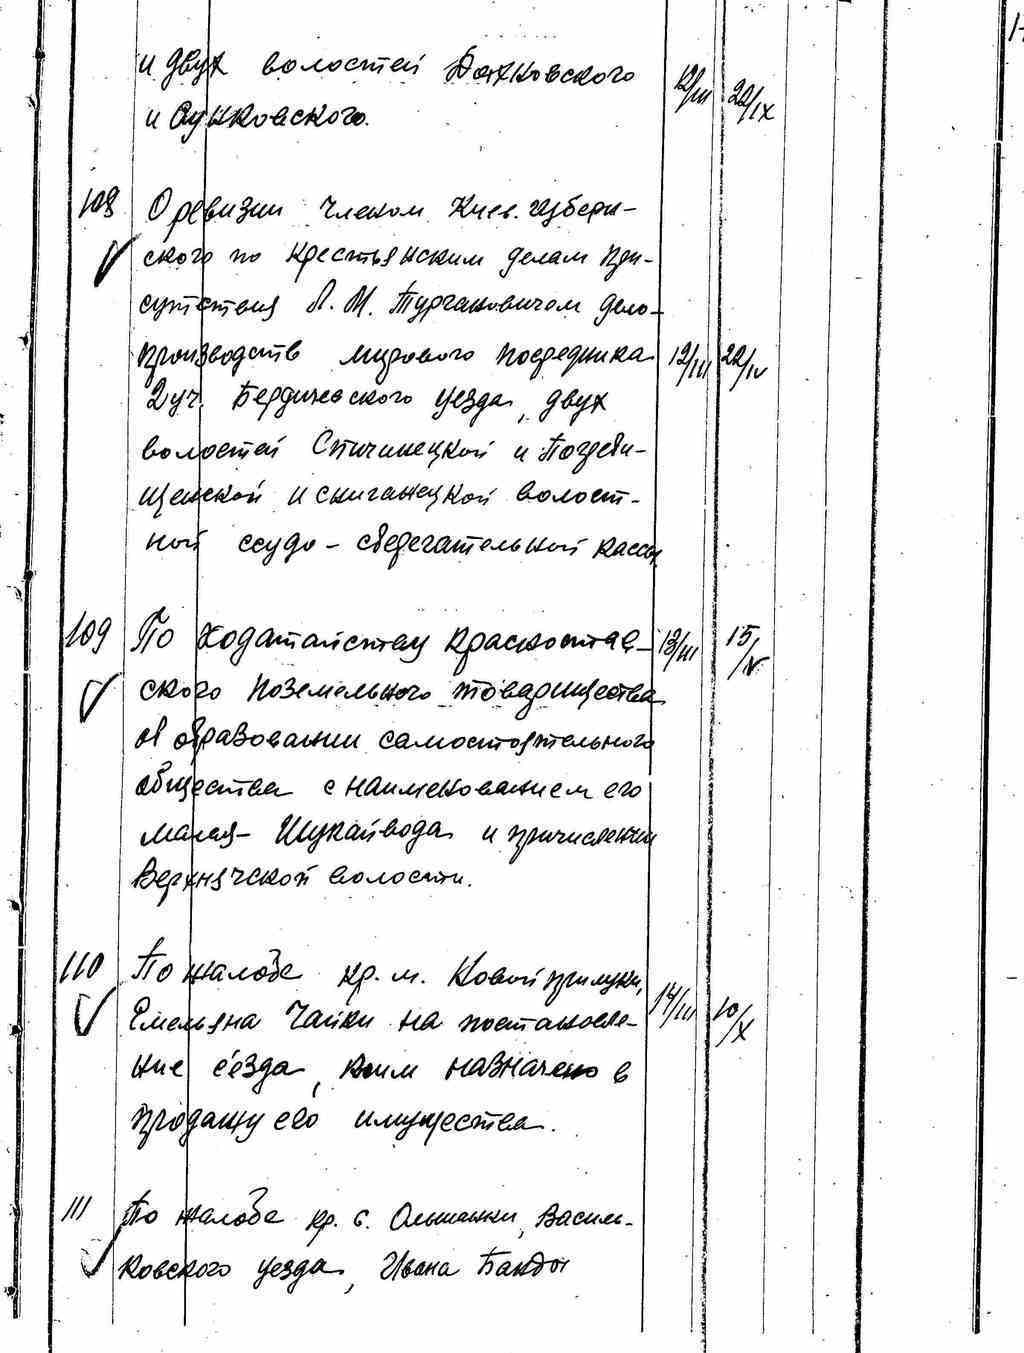 и двух волостей Вахновского 12/III 22/IX
и Сунковского.
108 О ревизии членом Киев. губерн-
ского по крестьянским делам При-
сутствия Л. М. Турчановичом дело-
производств мирового посредника 12/III 22/IV
2 уч. Бердичевского уезда, двух
волостей Спичинецкой и Погреби-
щенской и снигачецкой волост-
ной ссудо-сберегательной кассы.
109 По ходатайству Красностав- 13/III 15/IV
ского поземельного товарищества
об образовании самостоятельного
общества с наименованием его
малая-Шукайвода и причислении
Верхнячской волости.
110 По жалобе кр. м. Новой прилуки, 14/III 10/X
Емельяна Чайки на постановле-
ние съезда, коим назначено в
продажу его имущества.
111 По жалобе кр. с. Ольшанки, Василь-
ковского уезда, Ивана Бандо